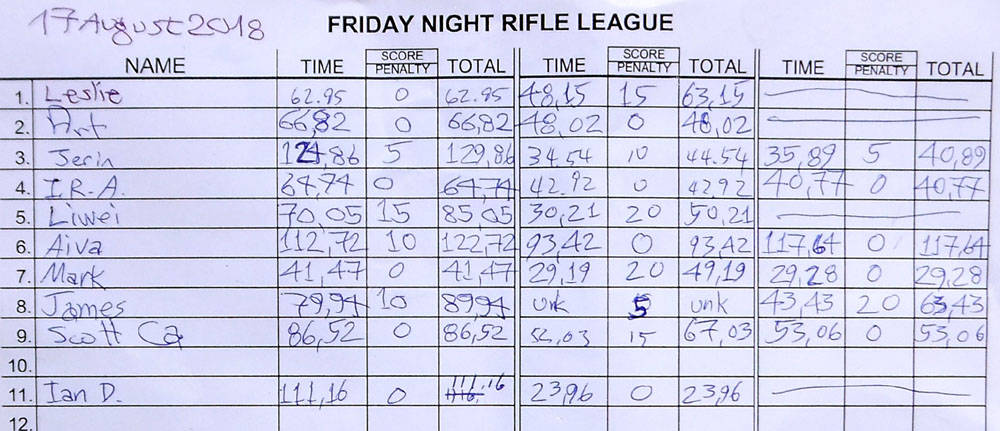 17 August 2018
FRIDAY NIGHT RIFLE LEAGUE
NAME TIME SCORE PENALTY TOTAL TIME SCORE PENALTY TOTAL TIME SCORE PENALTY TOTAL
1. Leslie 62.95 0 62.95 48,15 15 63,15
2. Art 66,82 0 66,82 48.02 0 48,02
3. Jerin 124,86 5 129,86 34.54 10 44.54 35,89 5 40,89
4. I.R.A. 64,74 0 64,74 42.92 0 42,92 40,77 0 40,77
5. Liwei 70,05 15 85,05 30,21 20 50,21
6. Aiva 112,72 10 122,72 93,42 0 93,42 117,64 0 117,64
7. Mark 41,47 0 41,47 29,19 20 49,19 29,28 0 29,28
8. James 79,94 10 89,94 unk 5 unk 43,43 20 63,43
9. Scott Ca 86,52 0 86,52 15 67,03 53,06 0 53,06
10.
11. Ian D. 111,16 0 111.16 23,96 0 23,96
12.